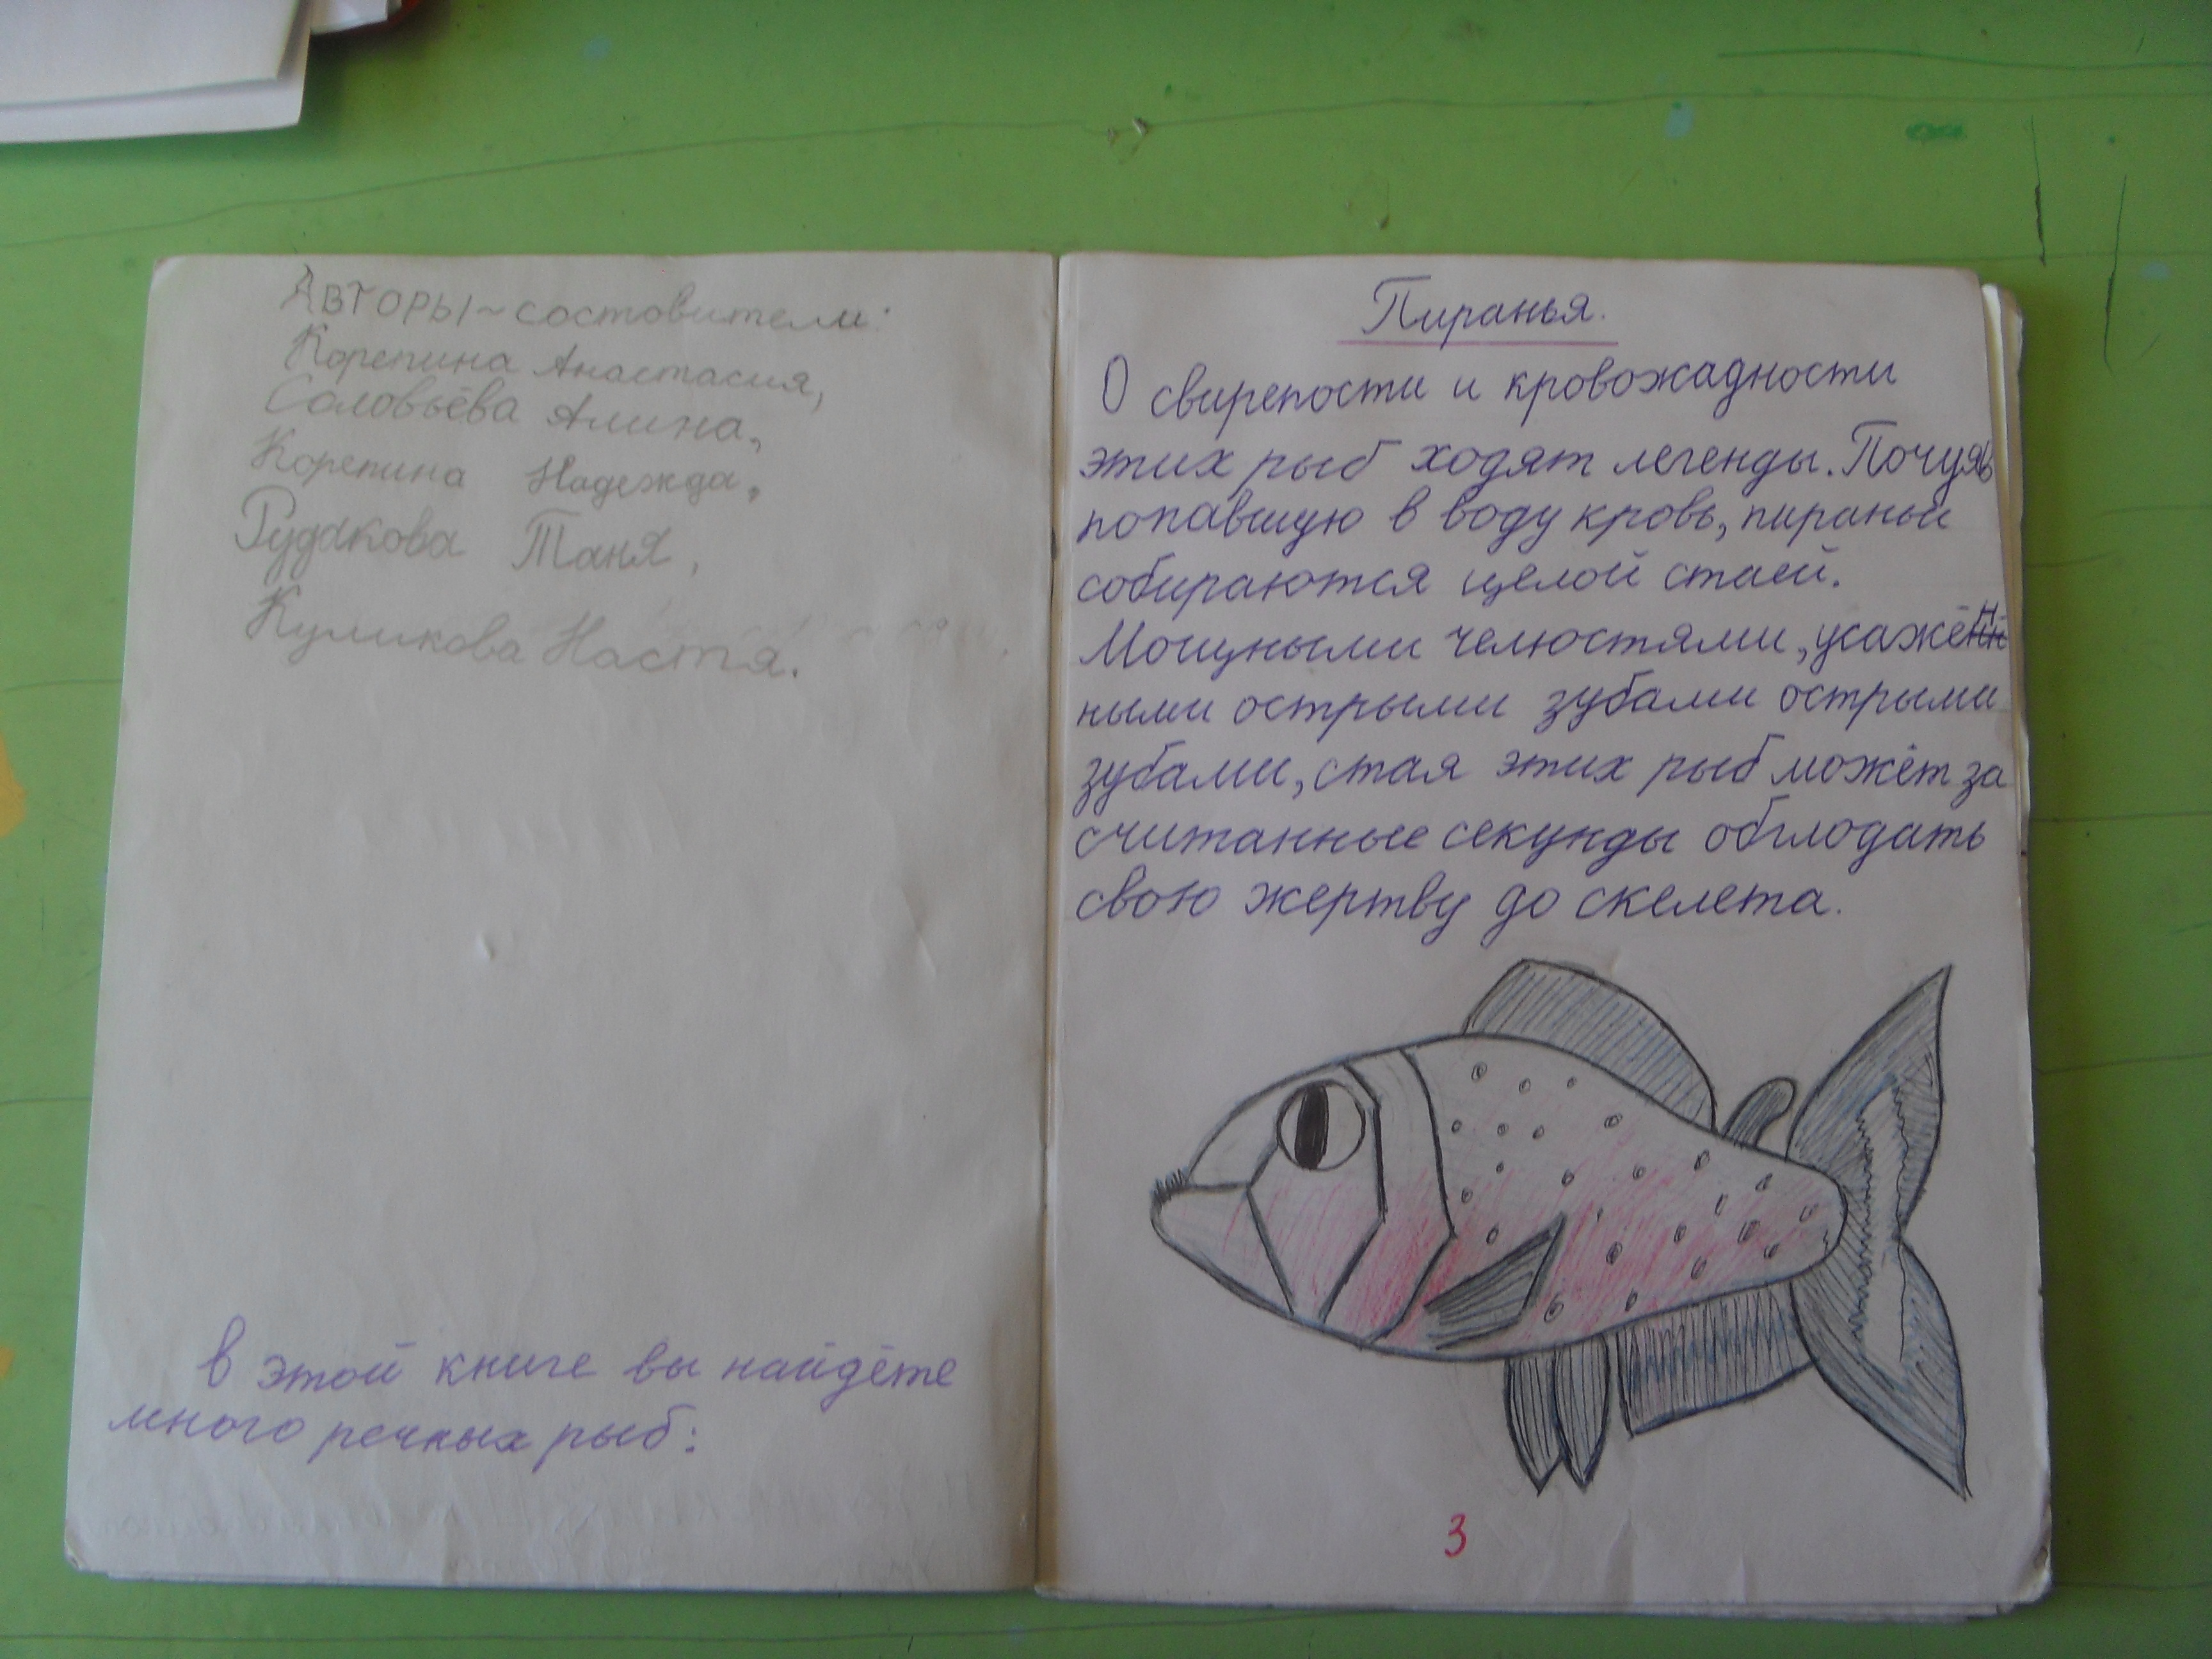 Авторы-состовители:
Корепина Анастасия,
Соловьёва Алина,
Корепина Надежда,
Рудакова Таня,
Куликова Настя.
в этой книге вы найдёте
много речных рыб:
Пиранья.
О свирепости и кровожадности
этих рыб ходят легенды. Почуяв
попавшую в воду кровь, пираньи
собираются целой стаей.
Мощными челюстями, усажён
ными острыми зубами острыми
зубами, стая этих рыб может за
считанные секунды обглодать
свою жертву до скелета.
3